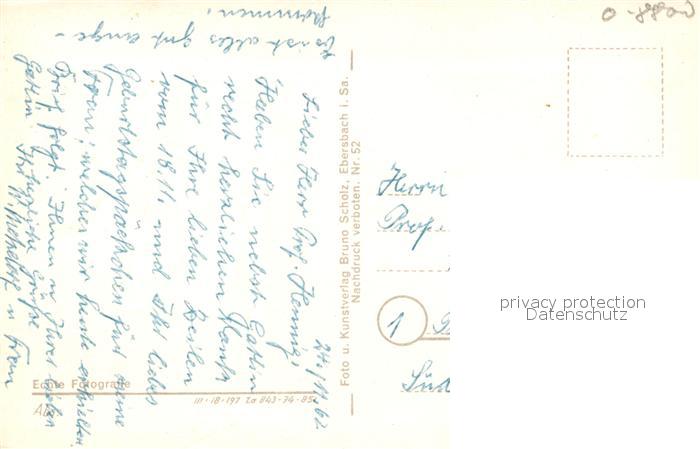 24./11.62
Lieber Herr Prof. Hennig!
Haben Sie nebst Gattin
recht herzlichen Dank
für Ihre lieben Zeilen
vom 18.11. und Ihr liebes
Geburtstagspäckchen für meine
Frau; welches wir heute erhielten.
Brief folgt Ihnen u. Ihrer lieben
Gattin herzliche Grüße
Ihr u. Frau
Es ist alles gut ange-
kommen.
Foto u. Kunstverlag Bruno Scholz, Ebersbach i. Sa.
Nachdruck verboten. Nr. 52
Echte Fotografie
III-18-197 Za 843-74-85
Herrn
Prof.
1
Süd
privacy protection
Datenschutz